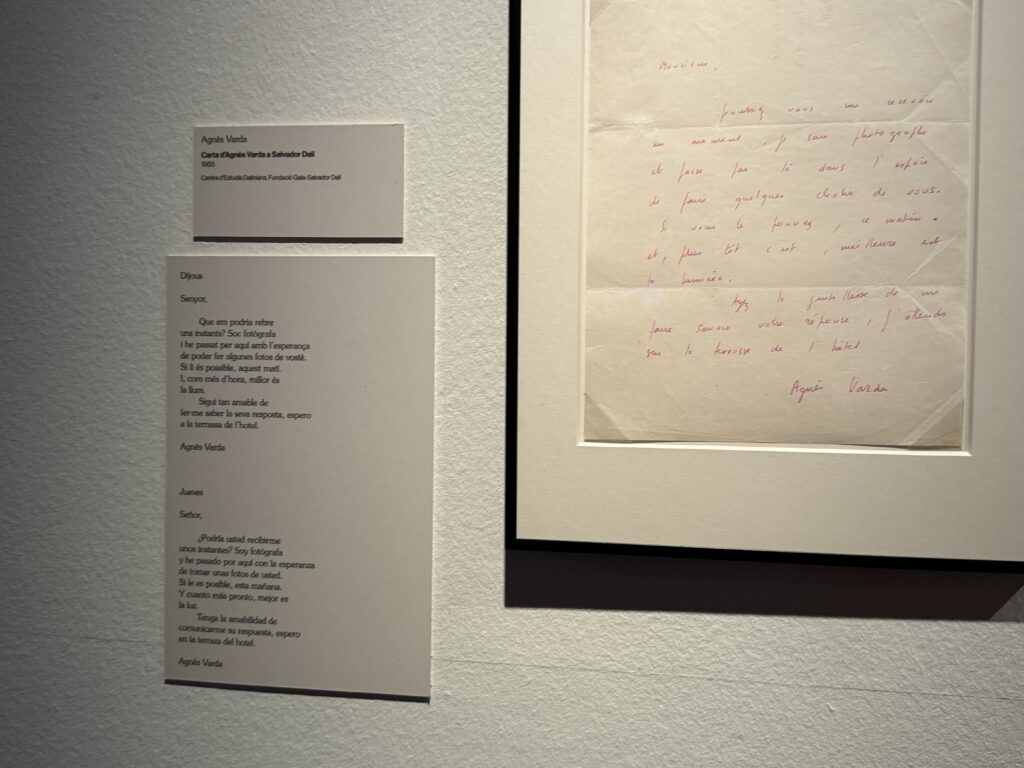 Agnès Varda
Carta d'Agnès Varda a Salvador Dalí
1955
Centre d'Estudis Dalinians, Fundació Gala-Salvador Dalí
Dijous
Senyor,
Que em podria rebre
uns instants? Soc fotògrafa
i he passat per aquí amb l'esperança
de poder fer algunes fotos de vostè.
Si li és possible, aquest matí.
I, com més d'hora, millor és
la llum.
Sigui tan amable de
fer-me saber la seva resposta, espero
a la terrassa de l'hotel.
Agnès Varda
Jueves
Señor,
¿Podría usted recibirme
unos instantes? Soy fotógrafa
y he pasado por aquí con la esperanza
de tomar unas fotos de usted.
Si le es posible, esta mañana.
Y cuanto más pronto, mejor es
la luz.
Tenga la amabilidad de
comunicarme su respuesta, espero
en la terraza del hotel.
Agnès Varda
Monsieur,
pouviez vous me recevoir
un moment, je suis photographe
et passe par là dans l'espoir
de faire quelques clichés de vous.
Si vous le pouvez, ce matin.
et, plus tôt c'est, meilleure est
la lumière.
Ayez la gentillesse de me
faire savoir votre réponse, j'attends
sur la terrasse de l'hôtel
Agnès Varda